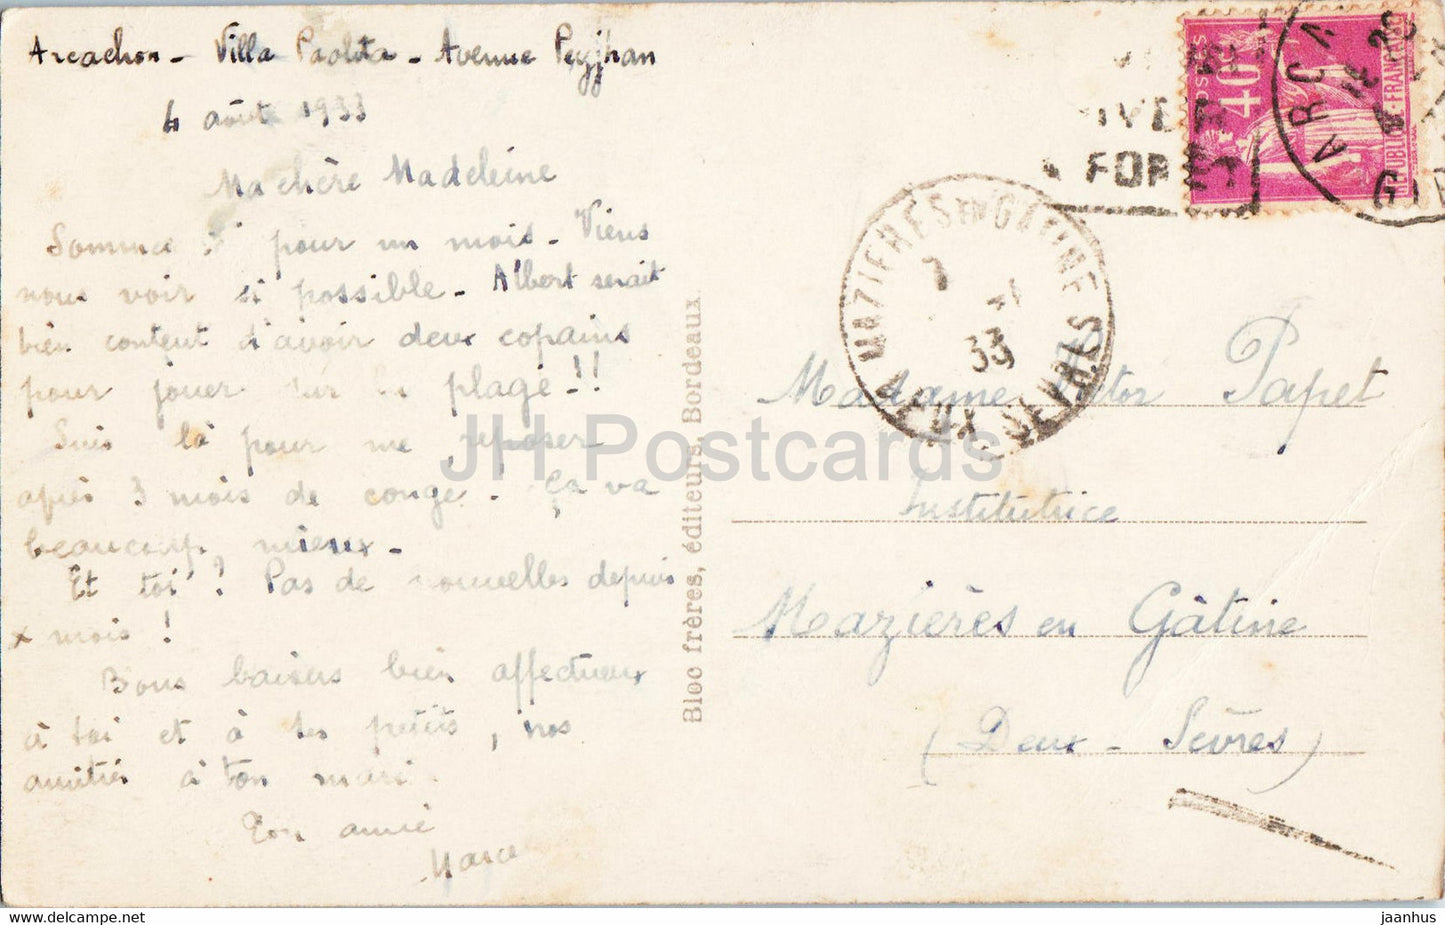 Arcachon - Villa Paolita - Avenue
4 août 1933
Ma chère Madeleine
Sommes ici pour un mois - Viens
nous voir si possible - Albert serait
bien content d'avoir deux copains
pour jouer sur la plage - !!
Suis là pour me reposer
après 3 mois de congé. Ça va
beaucoup mieux -
Et toi ? Pas de nouvelles depuis
x mois !
Bons baisers bien affectueux
à toi et à tes petits, nos
amitiés à ton mari.
Ton amie
Bloc frères, éditeurs, Bordeaux.
POSTES
40c
REPUBLIQUE FRANÇAISE
ARCA
GIR
MAZIERES EN GATINE
33
DEUX SEVRES
Madame Victor Papet
Institutrice
Mazières en Gâtine
(Deux-Sèvres)
JH Postcards
www.hippostcard.com/store/jhpostcards
jaanhus